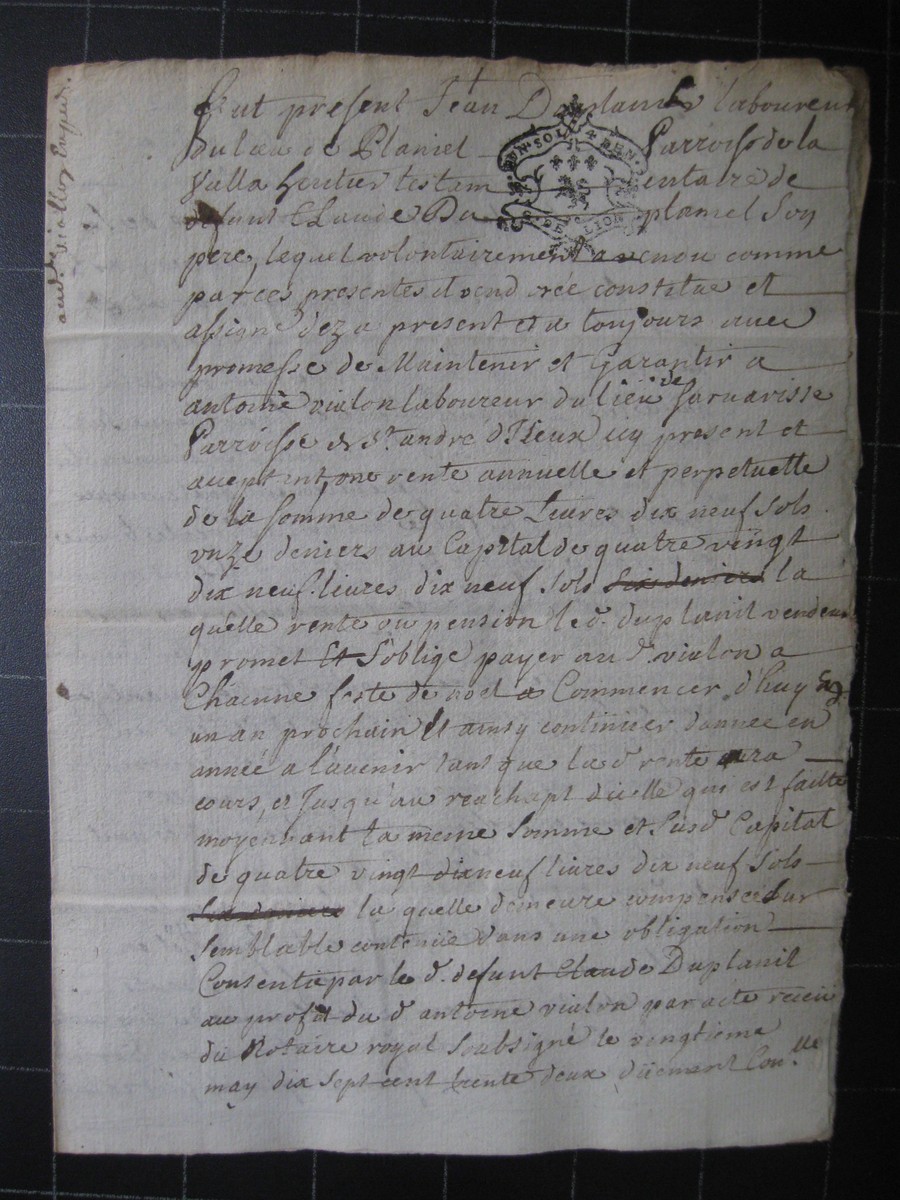 fut present Jean Duplanil laboureur
du lieu de Planiel Parroisse de la
Valla heritier testamentaire de
defunt Claude Duplaniel son
pere, lequel volontairement a comme
par ces presentes il vend crée constitue et
assigne deza present et a toujours avec
promesse de Maintenir et Garantir a
antoine vialon laboureur du lieu de
Parroisse de St. andré icy present et
aceptent, une rente annuelle et perpetuelle
de la somme de quatre livres dix neuf sols
onze deniers au Capital de quatre vingt
dix neuf livres dix neuf sols six deniers la
quelle rente ou pension le d. duplanil vendeur
promet Et s'oblige payer au d. vialon a
Chacune feste de noel a Commencer d'huy En
un an prochain Et ainsy continuer dannee en
année a l'avenir tant que la d. rente aura
cours, et Jusqu'au reachapt dicelle qui est faitte
moyennant la meme somme et susd. Capital
de quatre vingt dix neuf livres dix neuf sols
six deniers la quelle demeure compensee sur
semblable contenüe dans une obligation
Consentie par le d. defunt Claude Duplanil
au profit du d. antoine vialon par acte receu
du Notaire royal soubsigné le vingtieme
may dix sept cent trente deux düement Con.lle
GEN. SOLS DEN.
DE LION
aud. viallon Exped.